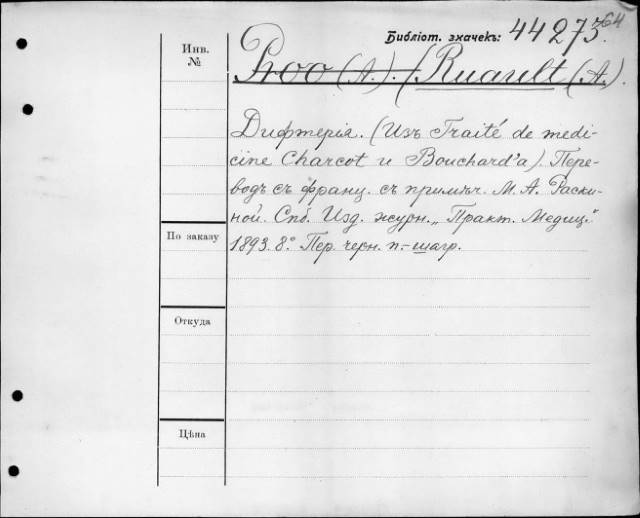 Библіот. значекъ: 44273 64
Инв.
№
Рюо (А). (Ruault (A).
Дифтерія. (Изъ Traité de medi-
cine Charcot и Bouchard'a). Пере-
водъ съ франц. съ примѣч. М. А. Раски-
ной. Спб. Изд. журн. „Практ. Медиц."
1893. 8° Пер. черн. п.-шагр.
По заказу
Откуда
Цѣна